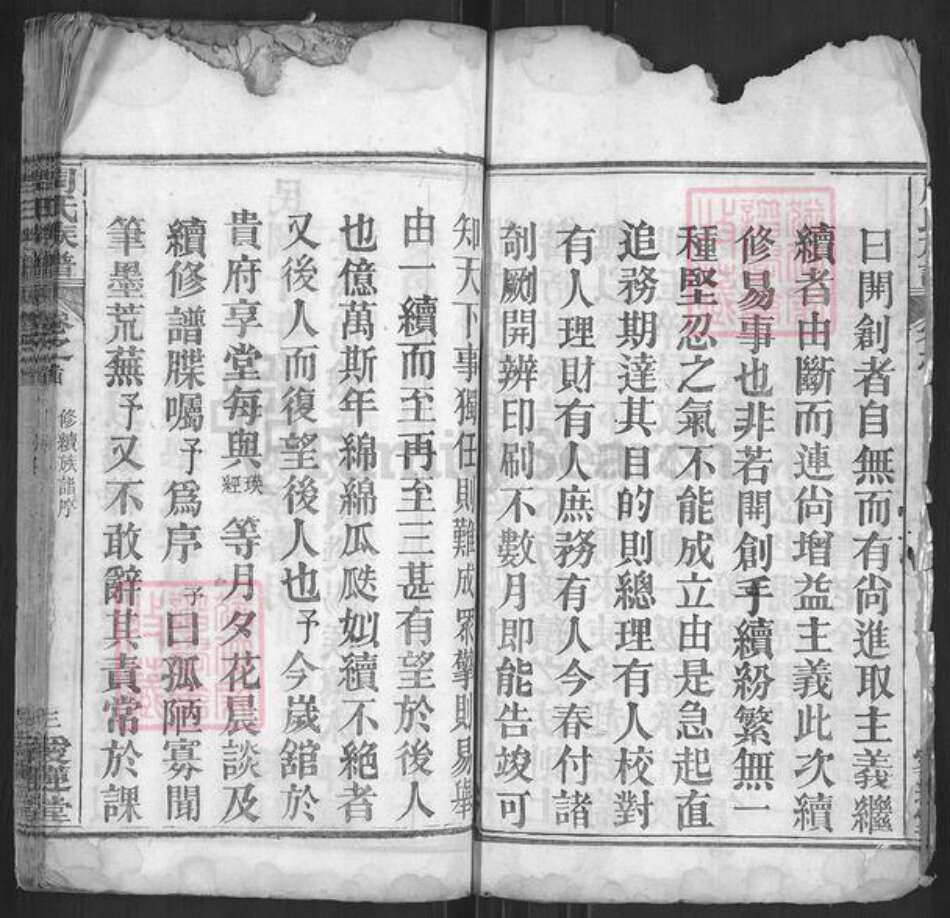 曰開創者自無而有尙進取主義繼
續者由斷而連尙增益主義此次續
修易事也非若開創手續紛繁無一
種堅忍之氣不能成立由是急起直
追務期達其目的則總理有人校對
有人理財有人庶務有人今春付諸
剞劂開辨印刷不數月即能告竣可
知天下事獨任則難成眾擎則易舉
由一續而至再至三甚有望於後人
也億萬斯年綿綿瓜瓞如續不絕者
又後人而復望後人也予今歲舘於
貴府享堂每與瑛經等月夕花晨談及
續修譜牒囑予爲序予曰孤陋寡聞
筆墨荒蕪予又不敢辭其責常於課
周氏族譜 卷之首 修續族譜序 三 愛蓮堂